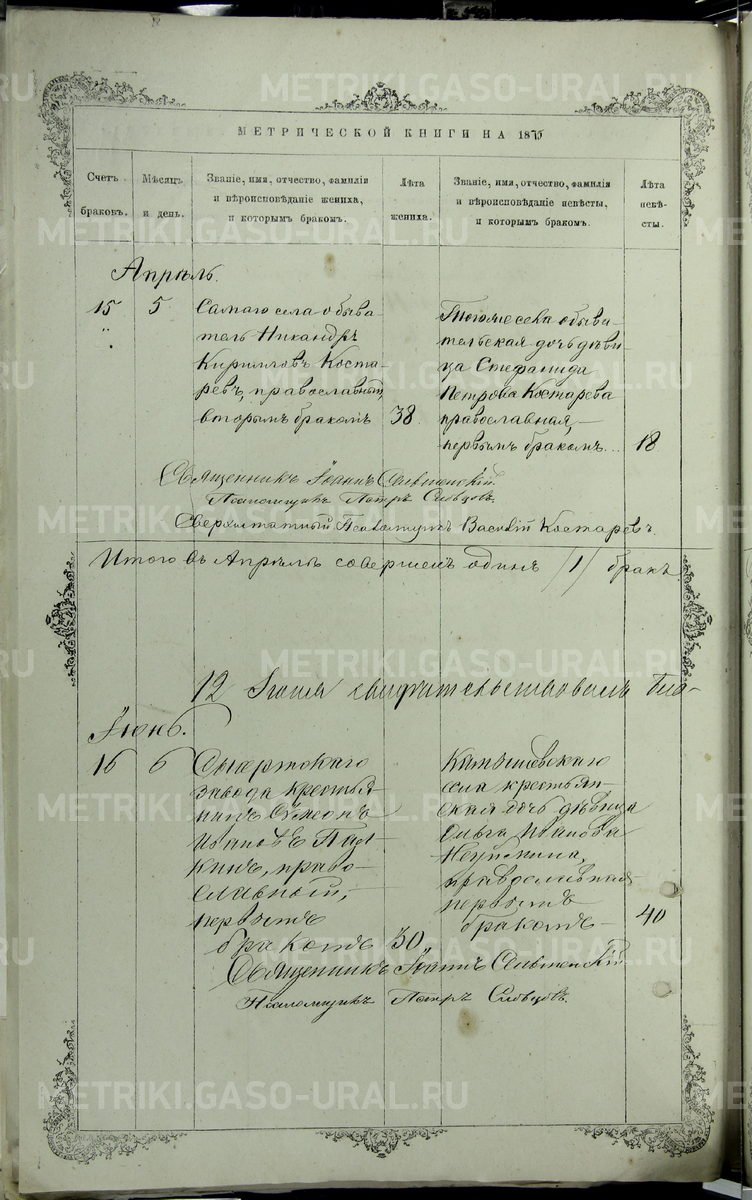 МЕТРИЧЕСКОЙ КНИГИ НА 1875
Счетъ браковъ.
Мѣсяцъ и день.
Званіе, имя, отчество, фамилія
и вѣроисповѣданіе жениха,
и которымъ бракомъ.
Лѣта
жениха.
Званіе, имя, отчество, фамилія
и вѣроисповѣданіе невѣсты,
и которымъ бракомъ.
Лѣта
невѣ-
сты.
Апрѣль.
15
5
Самаго села обыва
тель Никандръ
Кирилловъ Коста-
ревъ, православный,
вторымъ бракомъ
38.
Того же села обыва-
тельская дочь дѣви-
ца Стефанида
Петрова Костарева
православная,
первымъ бракомъ...
18
Священникъ Іоаннъ
Псаломщикъ Петръ Словцовъ.
Сверхштатный Псаломщикъ Василій Костаревъ.
Итого въ Апрѣлѣ совершенъ одинъ /1/ бракъ.
12 Іюня
Іюнь.
16
6
Сысертскаго
завода крестья
нинъ Симеонъ
Ивановъ
кинъ, право-
славный,
первымъ
бракомъ
30
села крестьян-
ская дочь дѣвица
Ольга Иванова
православная
первымъ
бракомъ
40
Священникъ Іоаннъ
Псаломщикъ Петръ Словцовъ.
METRIKI.GASO-URAL.RU